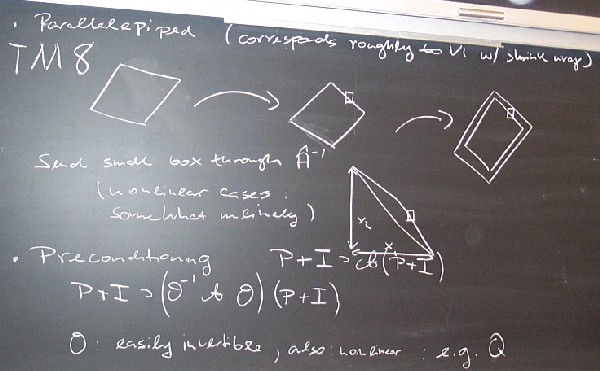 • Parallelepiped (corresponds roughly to Vi w/ shrink wrap)
TM 8
Send small box through Â⁻¹
(nonlinear cases:
somewhat
x₂
x₁
• Preconditioning P+I = A(P+I)
P+I = (O⁻¹ A O)(P+I)
O: easily invertible, also nonlinear: e.g. Q